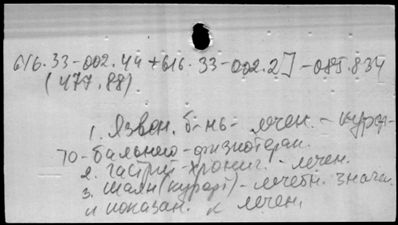 616.33-002.44+616.33-002.2]-085.834
(477.88).
1. Язвен. б-нь - лечен. - курор-
то-бальнео-физиотерап.
2. Гастрит-хронич. - лечен.
3. Шаян (курорт) - лечебн. знач.
и показан. к лечен.